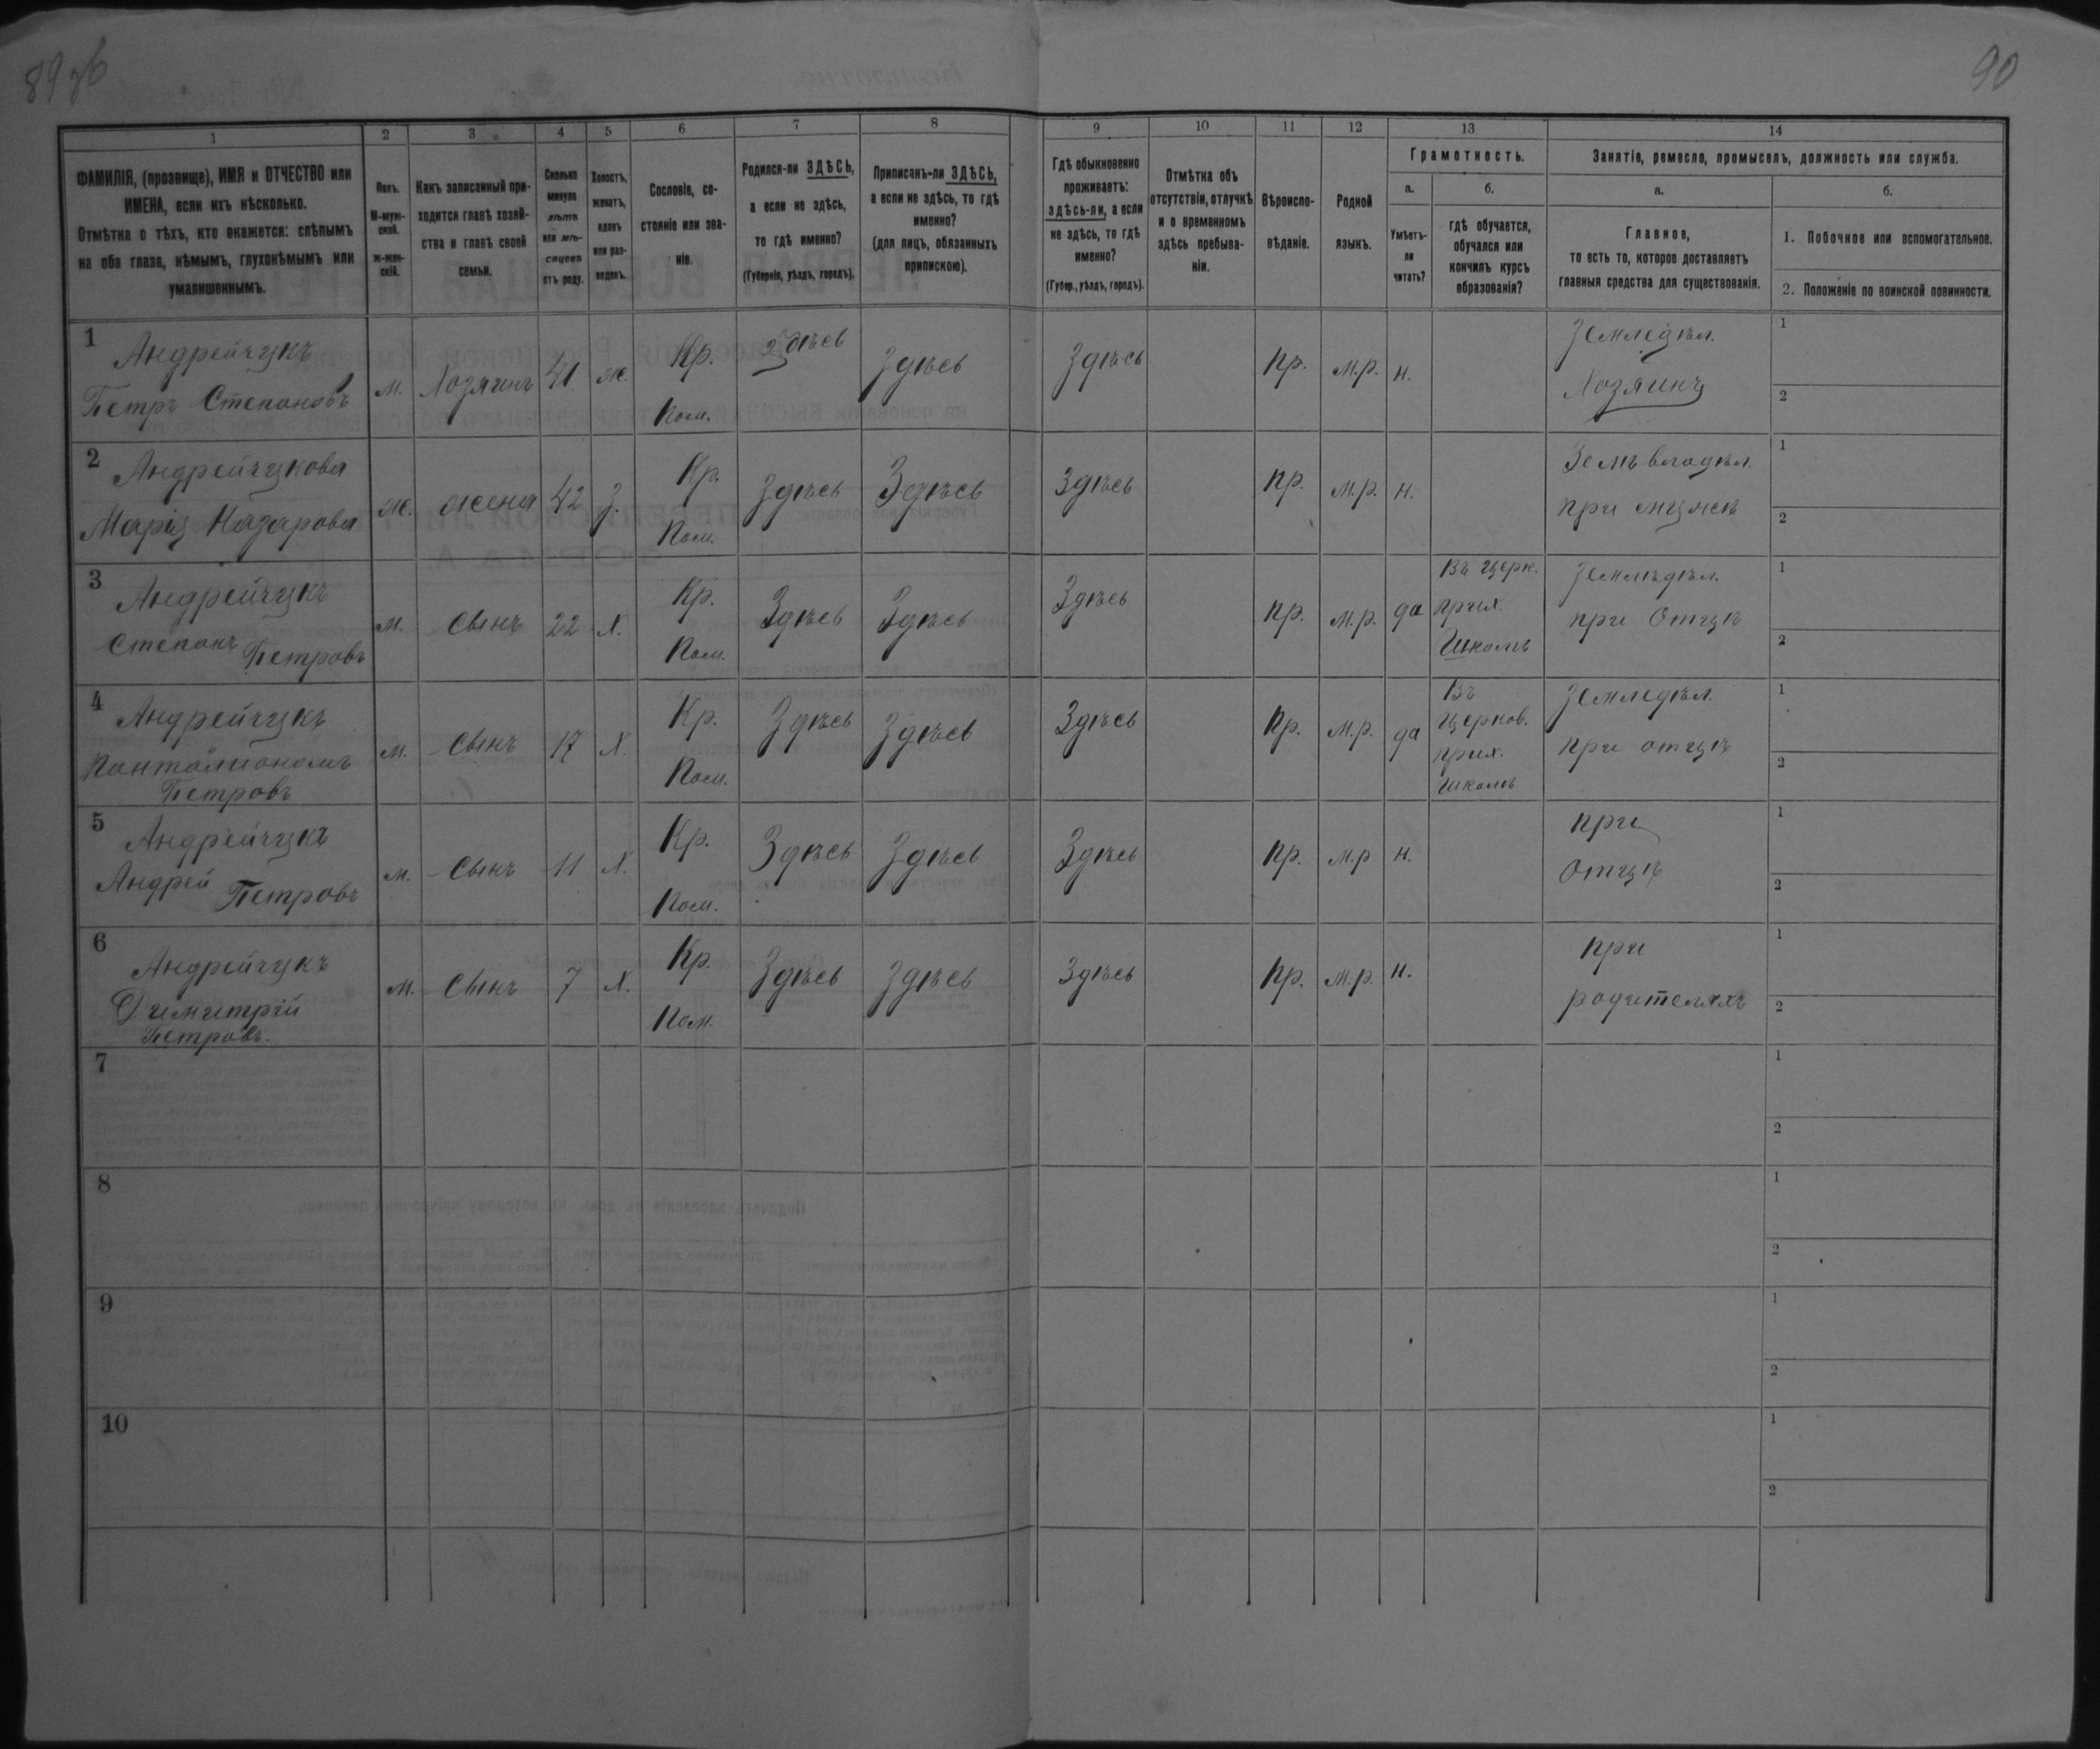 89 об
90
1
2
3
4
5
6
7
8
9
10
11
12
13
14
ФАМИЛІЯ, (прозвище), ИМЯ и ОТЧЕСТВО или
ИМЕНА, если ихъ нѣсколько.
Отмѣтка о тѣхъ, кто окажется: слѣпымъ
на оба глаза, нѣмымъ, глухонѣмымъ или
умалишеннымъ.
Полъ.
М-муж-
ской.
ж-жен-
скій.
Какъ записанный при-
ходится главѣ хозяй-
ства и главѣ своей
семьи.
Сколько
минуло
лѣтъ
или мѣ-
сяцевъ
отъ роду.
Холостъ,
женатъ,
вдовъ
или раз-
веденъ.
Сословіе, со-
стояніе или зва-
ніе.
Родился-ли ЗДѢСЬ,
а если не здѣсь,
то гдѣ именно?
(Губернія, уѣздъ, городъ).
Приписанъ-ли ЗДѢСЬ,
а если не здѣсь, то гдѣ
именно?
(для лицъ, обязанныхъ
припискою).
Гдѣ обыкновенно
проживаетъ:
здѣсь-ли, а если
не здѣсь, то гдѣ
именно?
(Губер., уѣздъ, городъ).
Отмѣтка объ
отсутствіи, отлучкѣ
и о временномъ
здѣсь пребыва-
ніи.
Вѣроиспо-
вѣданіе.
Родной
языкъ.
Грамотность.
а.
б.
Умѣетъ-
ли
читать?
гдѣ обучается,
обучался или
кончилъ курсъ
образованія?
Занятіе, ремесло, промыселъ, должность или служба.
а.
б.
Главное,
то есть то, которое доставляетъ
главныя средства для существованія.
1. Побочное или вспомогательное.
2. Положеніе по воинской повинности.
1
Андрейчукъ
Петръ Степановъ
м.
Хозяинъ
41
ж.
Кр.
Пом.
Здѣсь
Здѣсь
Здѣсь
Пр.
м.р.
н.
Земледѣл.
Хозяинъ
1
2
2
Андрейчукова
Марія Назарова
ж.
жена
42
З.
Кр.
Пом.
Здѣсь
Здѣсь
Здѣсь
Пр.
м.р.
н.
при мужѣ
1
2
3
Андрейчукъ
Степанъ Петровъ
м.
Сынъ
22
Х.
Кр.
Пом.
Здѣсь
Здѣсь
Здѣсь
Пр.
м.р.
да
Въ церк.
прих.
Школѣ
Землѣдѣл.
при Отцѣ
1
2
4
Андрейчукъ
Петровъ
м.
Сынъ
17
Х.
Кр.
Пом.
Здѣсь
Здѣсь
Здѣсь
Пр.
м.р.
да
Въ
церков.
прих.
школѣ
Земледѣл.
при отцѣ
1
2
5
Андрейчукъ
Андрей Петровъ
м.
Сынъ
11
Х.
Кр.
Пом.
Здѣсь
Здѣсь
Здѣсь
Пр.
м.р
н.
при
Отцѣ
1
2
6
Андрейчукъ
Димитрій
Петровъ.
м.
Сынъ
7
Х.
Кр.
Пом.
Здѣсь
Здѣсь
Здѣсь
Пр.
м.р.
н.
при
родителяхъ
1
2
7
1
2
8
1
2
9
1
2
10
1
2